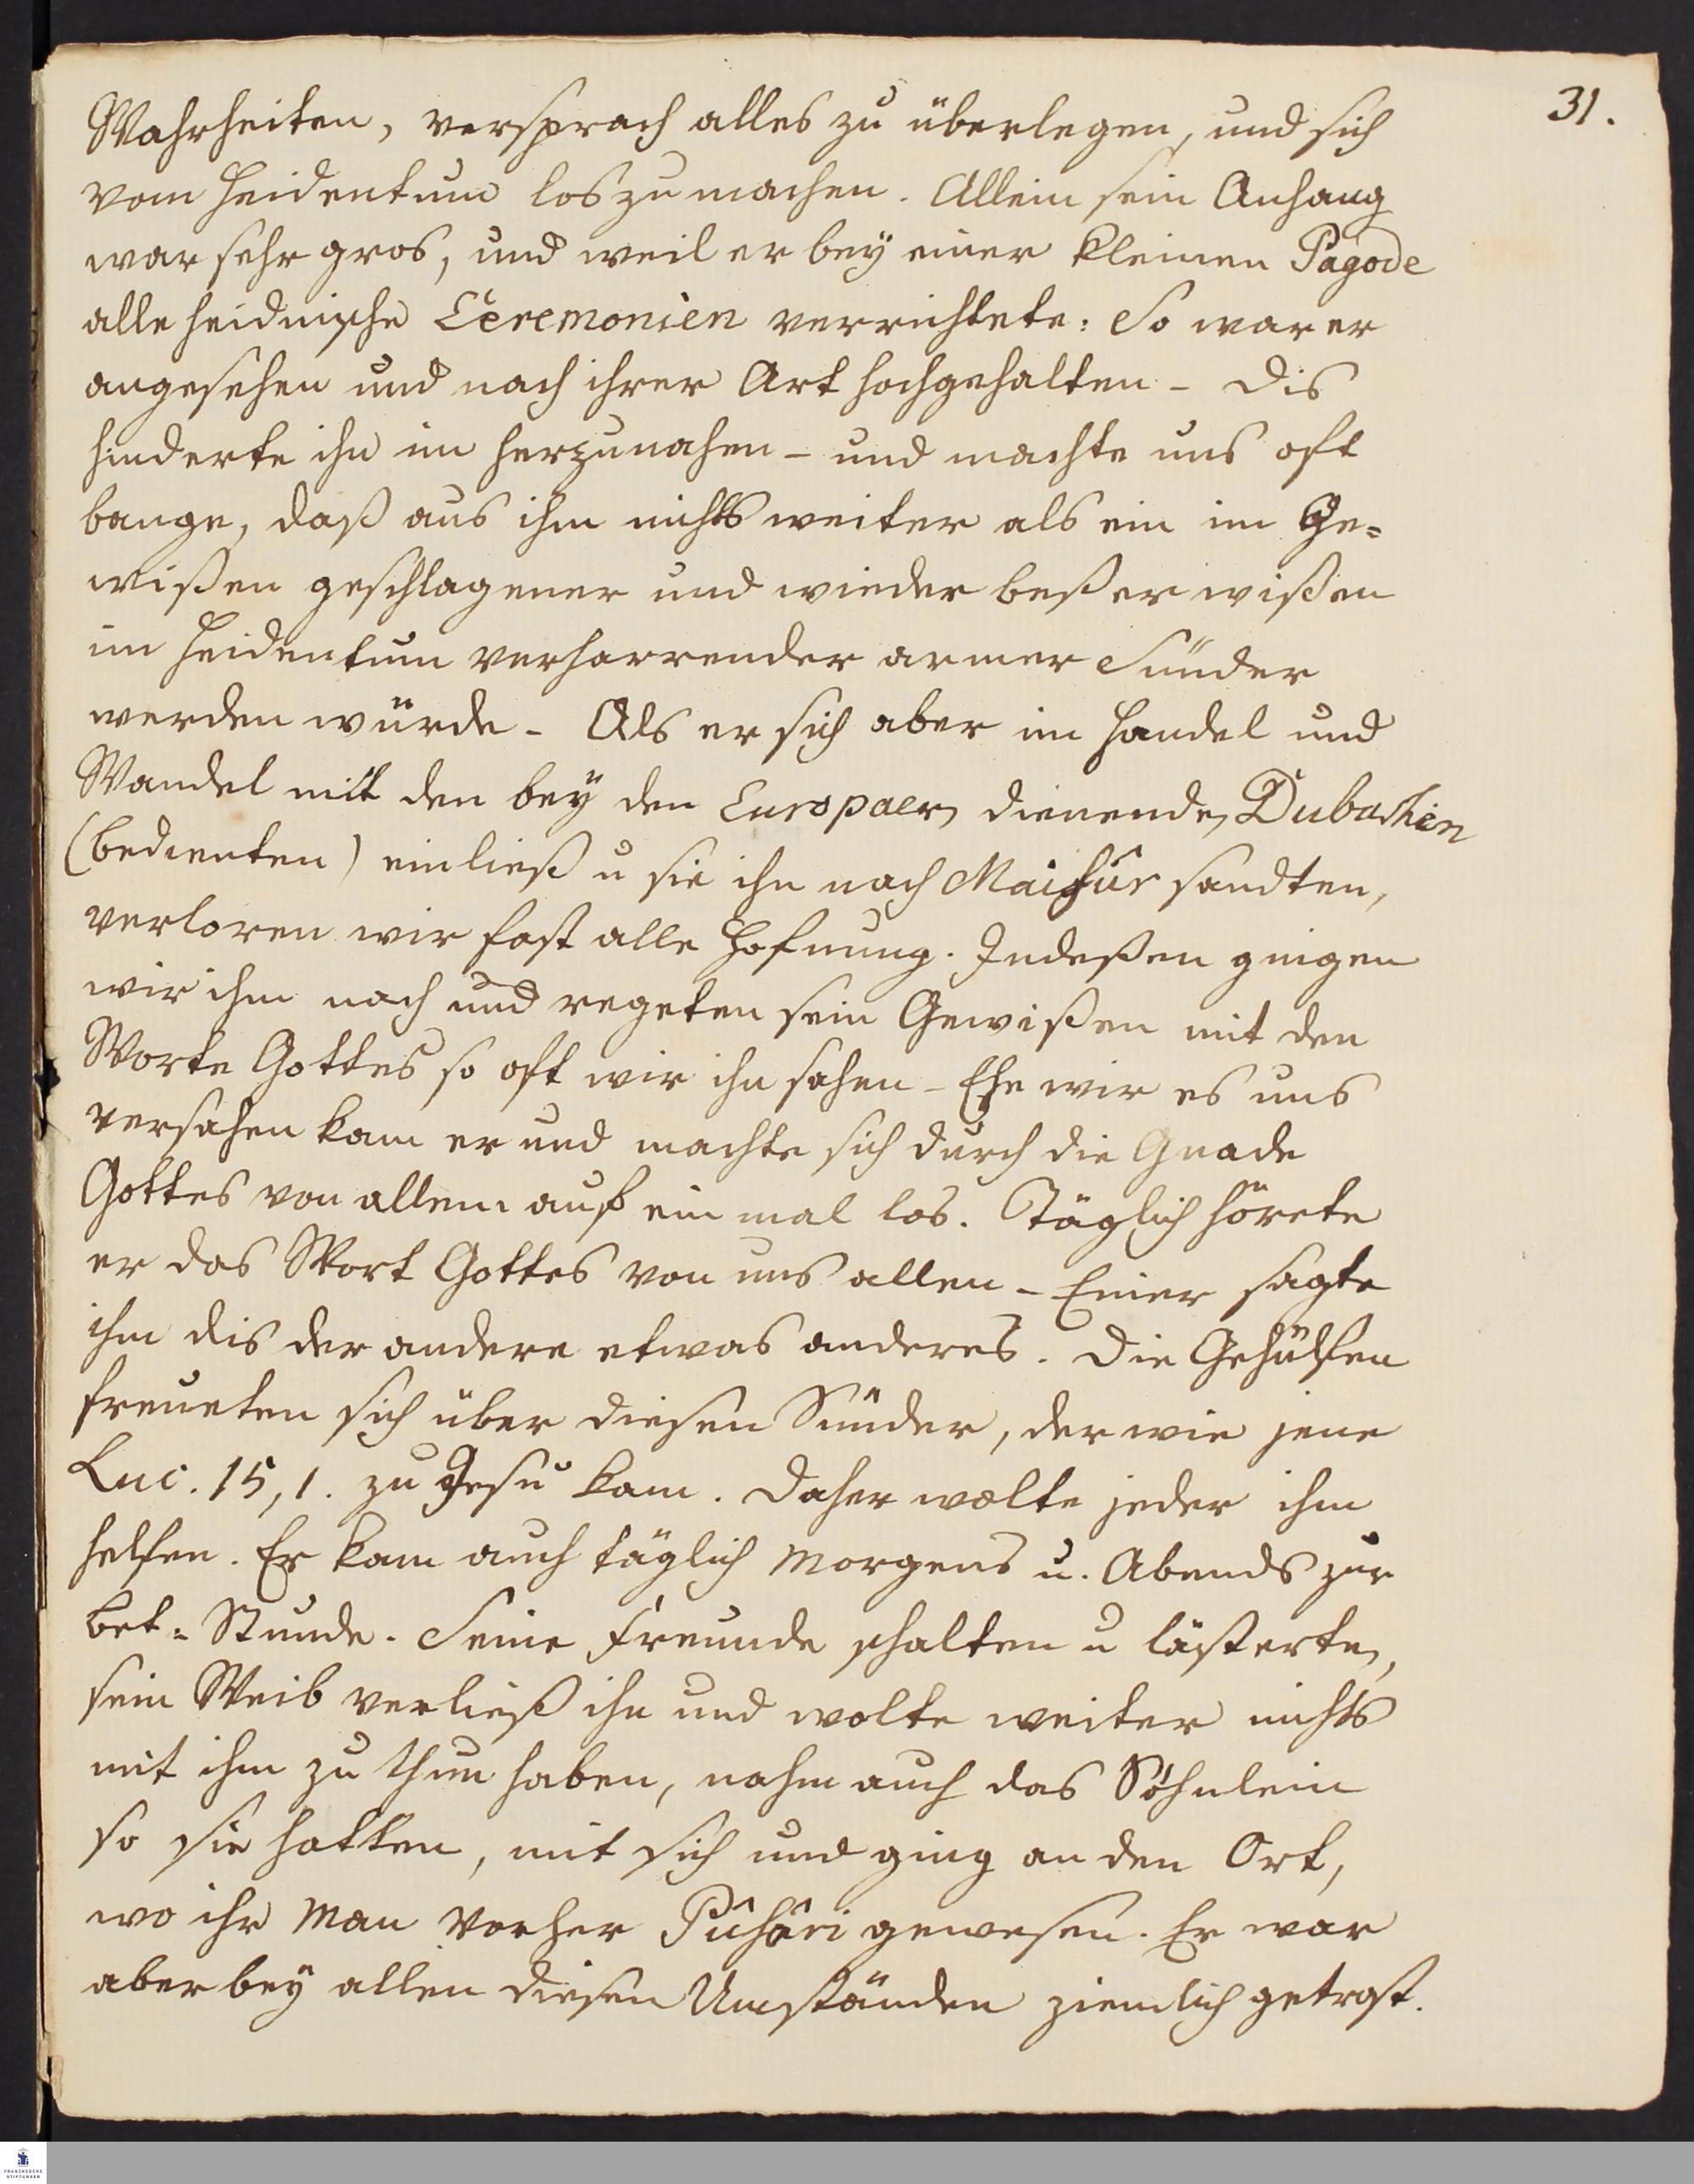 31.
Wahrheiten, versprach alles zu überlegen, und sich
vom Heidentum loszumachen. Allein sein Anhang
war sehr gros, und weil er bey einer kleinen Pagode
alle heidnische Ceremonien verrichtete: So war er
angesehen und nach ihrer Art hochgehalten - Dis
hinderte ihn im herzunahen - und machte uns oft
bange, daß aus ihm nichts weiter als ein im Ge=
wißen geschlagener und wieder beßer wißen
im Heidentum verharrender armer Sünder
werden würde - Als er sich aber im Handel und
Wandel mit den bey den Europaern dienenden Dubashen
(bedienten) einließ u sie ihn nach Maisur sandten,
verloren wir fast alle Hofnung. Indeßen gingen
wir ihm nach und regeten sein Gewißen mit den
Worte Gottes so oft wir ihn sahen - Ehe wir es uns
versahen kam er und machte sich durch die Gnade
Gottes von allem auf ein mal los. Täglich hörete
er das Wort Gottes von uns allen - Einer sagte
ihm dis der andere etwas anderes. Die Gehülfen
freueten sich über diesen Sünder, der wie jene
Luc. 15, 1. zu Jesu kam. Daher wolte jeder ihm
helfen. Er kam auch täglich Morgens u. Abends zur
bet=Stunde. Seine Freunde schalten u lästerten,
sein Weib verließ ihn und wolte weiter nichts
mit ihm zu thun haben, nahm auch das Söhnlein
so sie hatten, mit sich und ging an den Ort,
wo ihr Man vorher Puhari gewesen. Er war
aber bey allen diesen Umständen ziemlich getrost.
FRANCKESCHE
STIFTUNGEN